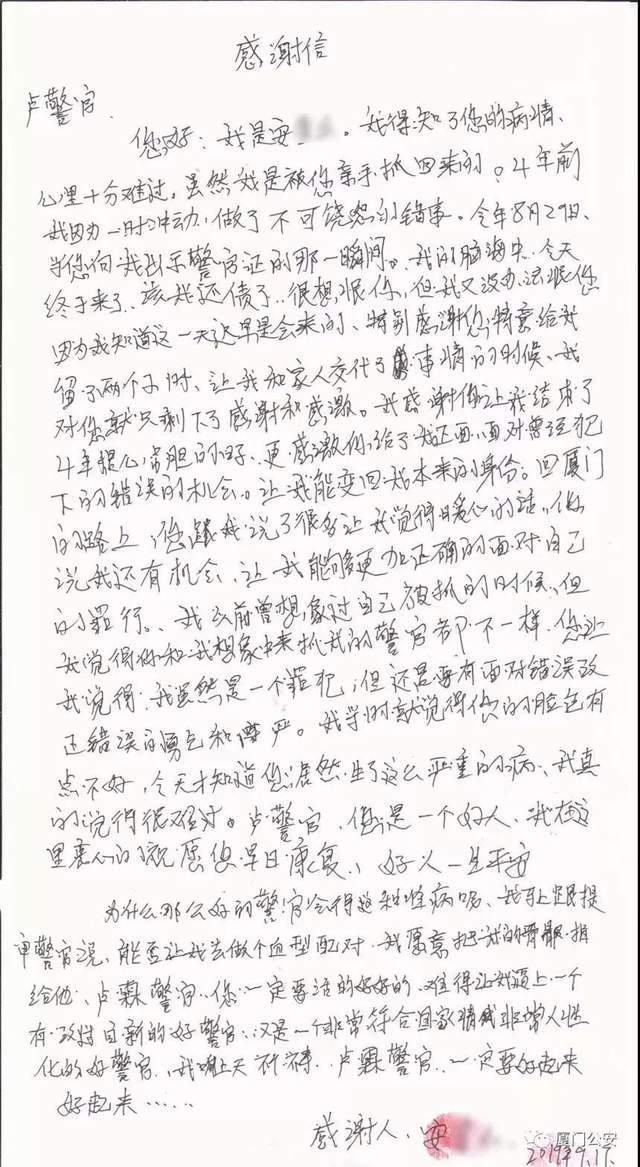 感谢信
卢警官
您好：我是安 。我得知了您的病情、
心里十分难过。虽然我是被您亲手抓回来的。4年前
我因为一时冲动，做了不可饶恕的错事。今年8月29日、
当您向我出示警官证的那一瞬间。我的脑海中、今天
终于来了、该我还债了、很想恨你，但我又没办法恨你
因为我知道这一天迟早是会来的、特别感谢您特意给我
留了两个小时、让我和家人交代了事情的时候、我
对您就只剩下了感谢和感激。我感谢你让我结束了
4年提心吊胆的日子、更感激你给了我正面面对曾经犯
下的错误的机会。让我能变回我本来的身份。回厦门
的路上，您跟我说了很多让我觉得暖心的话。你
说我还有机会、让我能够更加正确的面对自己
的罪行。、我以前曾想象过自己被抓的时候、但
我觉得你和我想象中来抓我的警官都不一样、您让
我觉得、我虽然是一个罪犯，但还是要有面对错误改
正错误的勇气和尊严。我当时就觉得您的脸色有
点不好，今天才知道您居然生了这么严重的病、我真
的觉得很难过。卢警官、您是一个好人、我在这
里衷心的祝愿您早日康复、好人一生平安
为什么那么好的警官会得这种怪病呢、我马上跟提
审警官说，能否让我去做个血型配对、我愿意把我的骨髓捐
给他、卢霖警官、您一定要活的好好的、难得让我遇上一个
有改过自新的好警官、又是一个非常符合国家精诚非常人性
化的好警官、我嘴上天祈祷、卢霖警官、一定要好起来
好起来……
感谢人：安
2019.9.17.
厦门公安